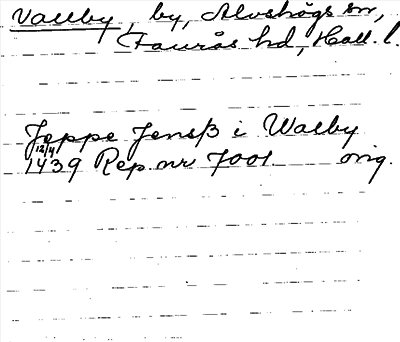 Vallby, by, Alvshögs sn,
Faurås hd, Hall. l.
Jeppe Jensß i Walby
12/4
1439 Rep. nr 7001 orig.